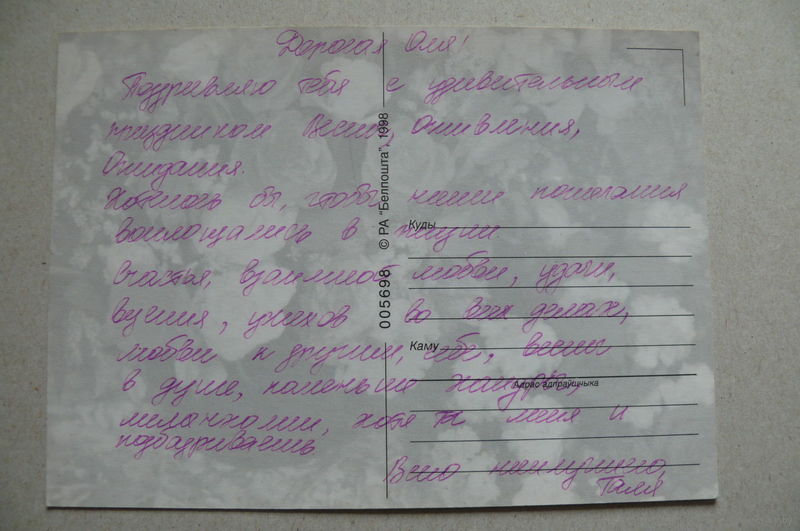 Дорогая Оля!
Поздравляю тебя с удивительным
праздником Весны, оживления,
Ожидания.
Хотелось бы, чтобы наши пожелания
воплощались в жизни.
Счастья, взаимной любви, удачи,
везения, успехов во всех делах,
любви к другим, себе, весны
в душе, поменьше хандры,
меланхолии, хотя ты меня и
подбадриваешь.
Всего наилучшего,
Галя
005698 © РА "Белпошта", 1998
Куды
Каму
Адрас адпраўшчыка